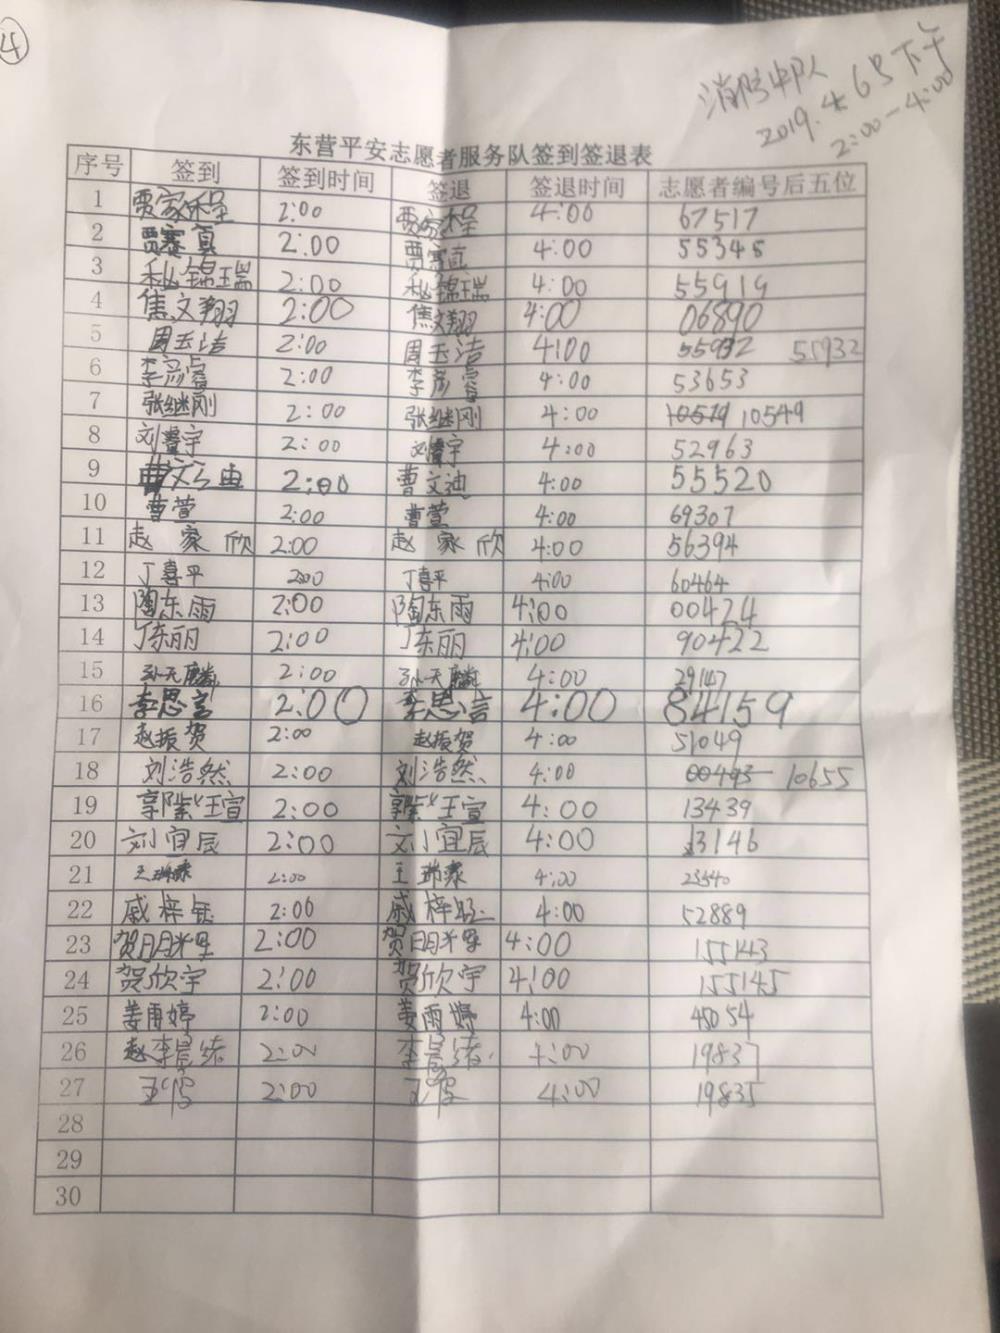 ④
消防中队
2019.4.6号下午
2:00-4:00
东营平安志愿者服务队签到签退表
序号 签到 签到时间 签退 签退时间 志愿者编号后五位
1 贾家程 2:00 贾家程 4:00 67517
2 贾赛真 2:00 贾赛真 4:00 55345
3 秘锦瑞 2:00 秘锦瑞 4:00 55919
4 焦文翔 2:00 焦文翔 4:00 06890
5 周玉洁 2:00 周玉洁 4:00 55932 55932
6 李彦睿 2:00 李彦睿 4:00 53653
7 张继刚 2:00 张继刚 4:00 10549
8 刘宇 2:00 刘宇 4:00 52963
9 曹文迪 2:00 曹文迪 4:00 55520
10 曹萱 2:00 曹萱 4:00 69307
11 赵家欣 2:00 赵家欣 4:00 56394
12 丁喜平 2:00 丁喜平 4:00 60464
13 陶东雨 2:00 陶东雨 4:00 00424
14 丁东丽 2:00 丁东丽 4:00 90422
15 孙天麟 2:00 孙天麟 4:00 29147
16 李思言 2:00 李思言 4:00 84159
17 赵振贺 2:00 赵振贺 4:00 51049
18 刘浩然 2:00 刘浩然 4:00 00493 10655
19 郭紫瑄 2:00 郭紫瑄 4:00 13439
20 刘宜辰 2:00 刘宜辰 4:00 13146
21 王 2:00 王 4:00 23540
22 戚梓钰 2:00 戚梓 4:00 52889
23 贺 2:00 贺 4:00 155143
24 贺欣宇 2:00 贺欣宇 4:00 155145
25 姜雨婷 2:00 姜雨婷 4:00 45054
26 李晨绪 2:00 李晨绪 4:00 19837
27 王 2:00 王 4:00 19835
28
29
30